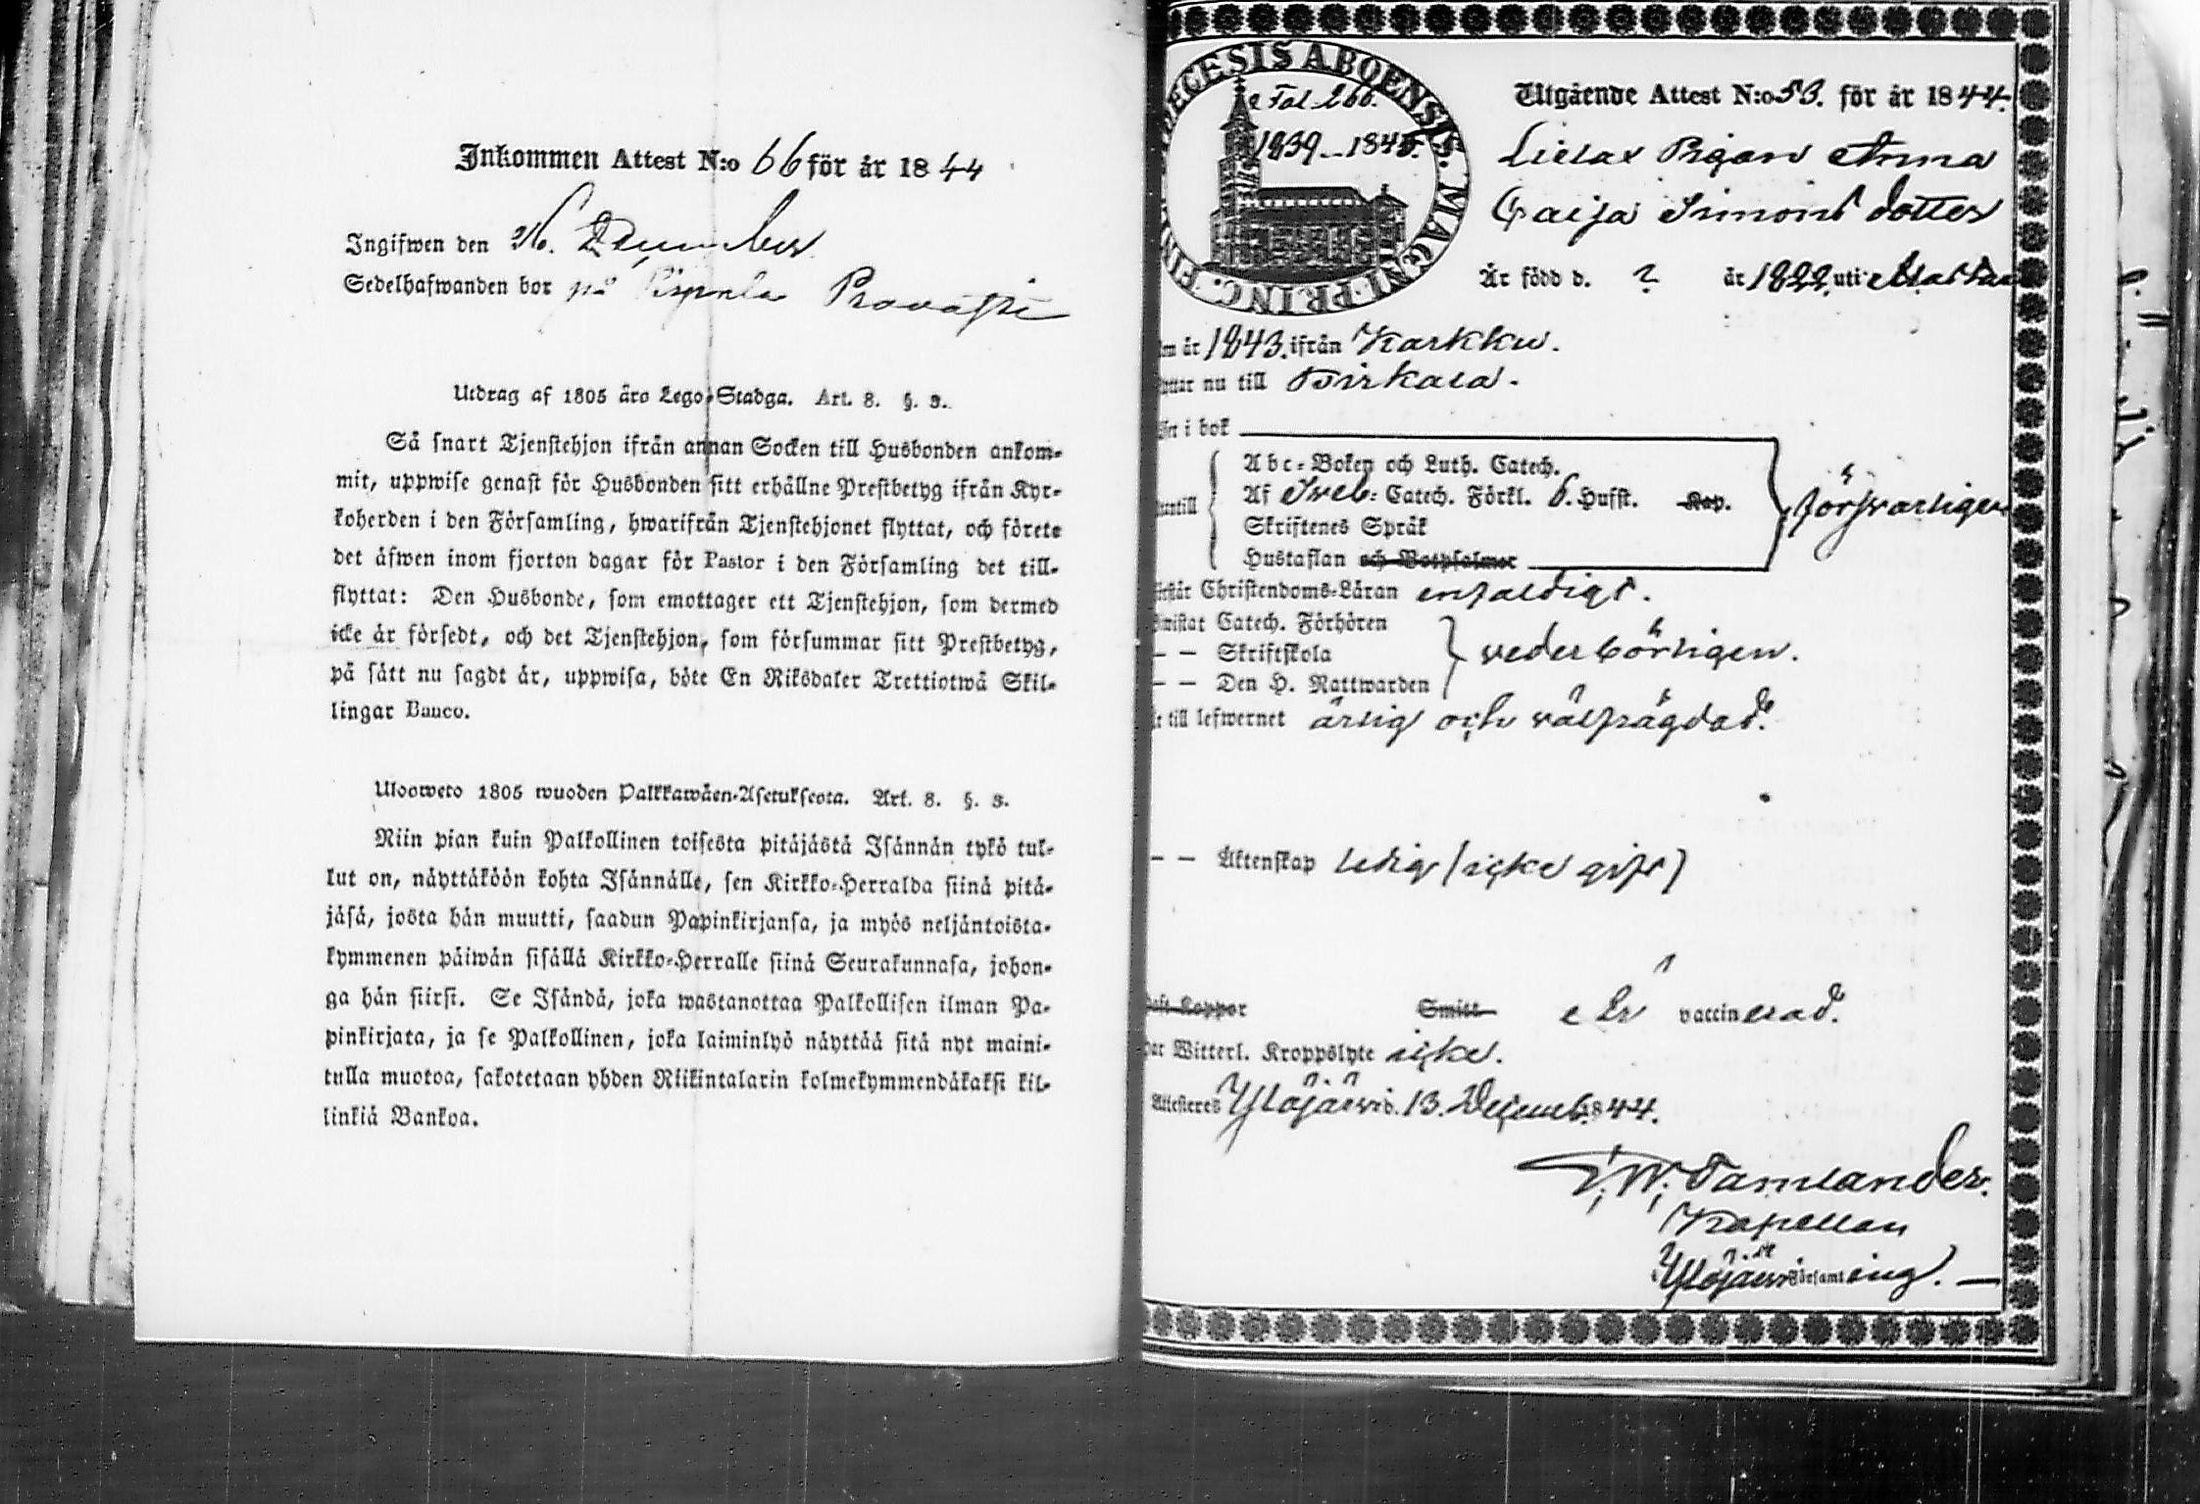 Inkommen Attest N:o 66 för år 1844
Ingifwen den 26. December
Sedelhafwanden bor på
Utdrag af 1805 års Lego-Stadga. Art. 8. §. 3.
Så snart Tjenstehjon ifrån annan Socken till Husbonden ankom-
mit, uppwise genast för Husbonden sitt erhållne Prestbetyg ifrån Kyr-
koherden i den Församling, hwarifrån Tjenstehjonet flyttat, och förete
det äfwen inom fjorton dagar för Pastor i den Församling det till-
flyttat: Den Husbonde, som emottager ett Tjenstehjon, som dermed
icke är försedt, och det Tjenstehjon, som försummar sitt Prestbetyg,
på sätt nu sagdt är, uppwisa, böte En Riksdaler Trettiotwå Skil-
lingar Banco.
Ulosweto 1805 wuoden Palkkawäen-Asetuksesta. Art. 8. §. 3.
Niin pian kuin Palkollinen toisesta pitäjästä Isännän tykö tul-
lut on, näyttäköön kohta Isännälle, sen Kirkko-Herralda siinä pitä-
jäsä, josta hän muutti, saadun Papinkirjansa, ja myös neljäntoista-
kymmenen päiwän sisällä Kirkko-Herralle siinä Seurakunnasa, johon-
ga hän siirsi. Se Isändä, joka wastanottaa Palkollisen ilman Pa-
pinkirjata, ja se Palkollinen, joka laiminlyö näyttää sitä nyt maini-
tulla muotoa, sakotetaan yhden Riikintalarin kolmekymmendäkaksi kil-
linkiä Bankoa.
DIECESIS ABOENSIS. MAGNI PRINC. FIN
Fol. 266.
1839–1845.
Utgående Attest N:o 53. för år 1844.
Pigan Anna
Caisa Simons dotter
Är född d. ? år 1822 uti
år 1843. ifrån Karkku.
nu till Birkala.
i bok
Abc-Boken och Luth. Catech.
Af Sveb: Catech. Förkl. 6. Hufst. Kap.
Skriftenes Språk
Hustaflan och Botpsalmer
försvarligen
Christendoms-Läran enfaldigt.
Catech. Förhören
– – Skriftskola
– – Den H. Nattwarden
vederbörligen.
till lefwernet ärlig och välfrägdad.
– – Äktenskap ledig (icke gift)
Koppor Smitt är vaccinerad.
Witterl. Kroppslyte icke.
Attesteres Ylöjärvi d. 13. Decemb. 1844.
Tamlander.
Kapellan
i Ylöjärvi Församling. –